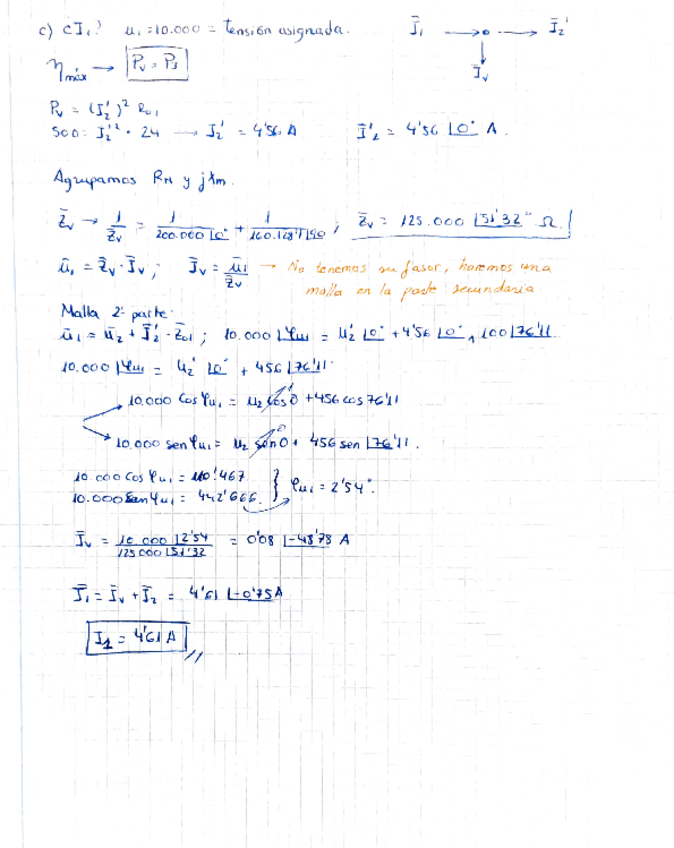 c) ¿I₁? u₁ = 10.000 = tensión asignada. Ī₁ → • → Ī₂'
η máx → Pv = Pj
Īv
Pv = (I₂')² R01
500 = I₂'² · 24 → I₂' = 4'56 A Ī'₂ = 4'56 |0° A.
Agrupamos RH y jXm.
Z̄v → 1/Z̄v = 1/200.000|0° + 1/160.128'7|90 ; Z̄v = 125.000 |51'32° Ω.
ū₁ = Z̄v · Īv ; Īv = ū₁/Z̄v → No tenemos su fasor, haremos una
malla en la parte secundaria
Malla 2ª parte:
ū₁ = ū₂ + Ī₂' · Z̄01 ; 10.000 |φu₁ = u₂' |0° + 4'56 |0° , 100 |76'11
10.000 |φu₁ = u₂' |0° + 456 |76'11
10.000 cos φu₁ = u₂ cos 0 + 456 cos 76'11
10.000 sen φu₁ = u₂ sen 0 + 456 sen |76'11.
10.000 cos φu₁ = 110'467
10.000 sen φu₁ = 442'666. } φu₁ = 2'54°.
Īv = 10.000 |2'54 / 125.000 |51'32 = 0'08 |-48'78 A
Ī₁ = Īv + Ī₂ = 4'61 |-0'75 A
I₁ = 4'61 A